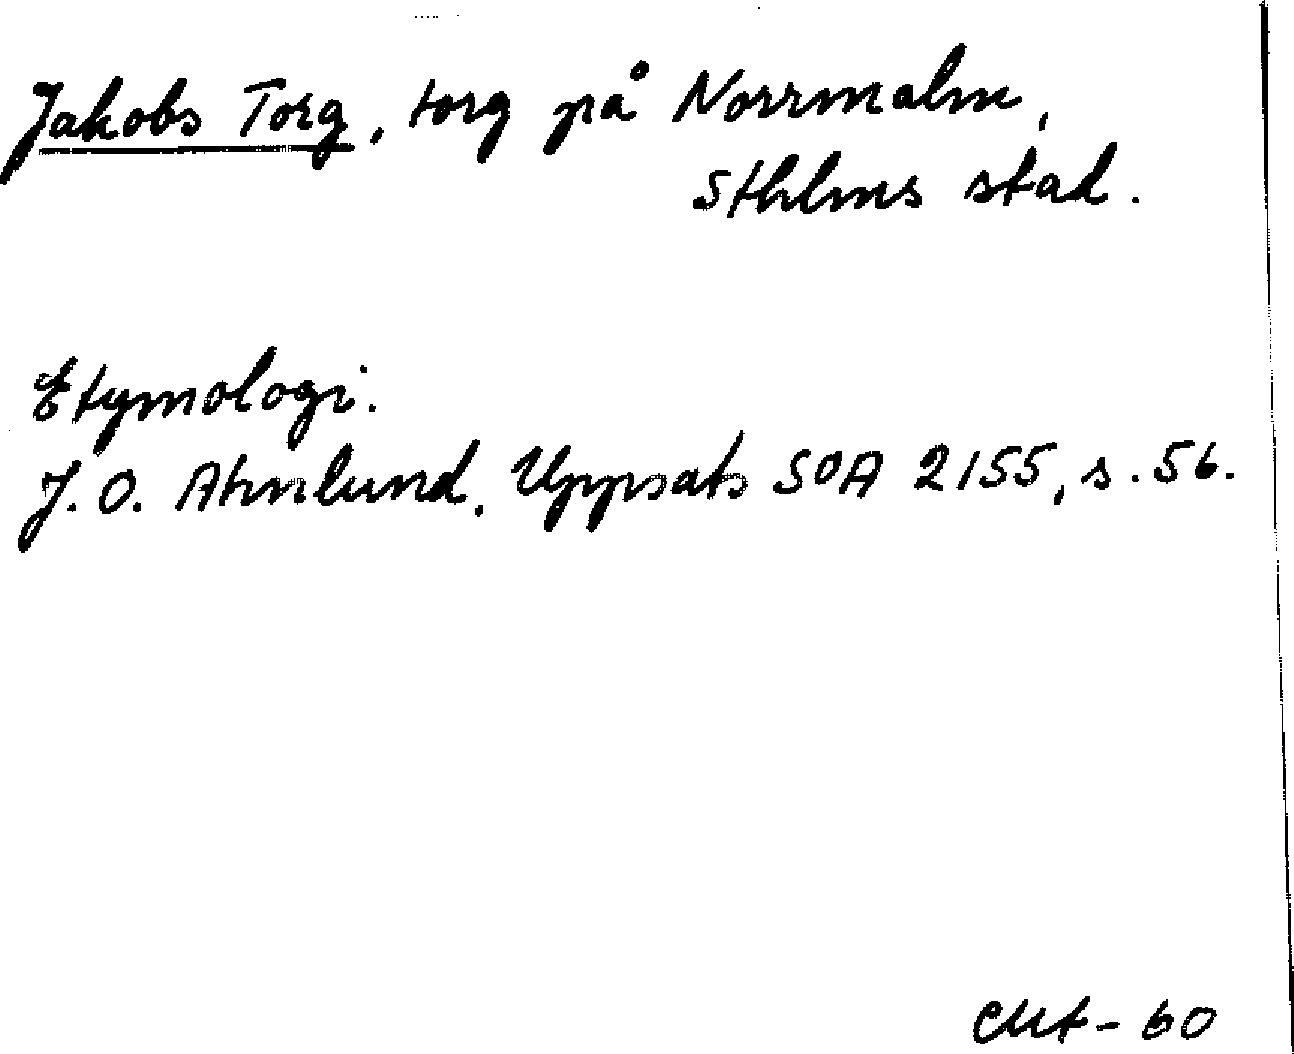 Jakobs Torg, torg på Norrmalm,
Sthlms stad.
Etymologi.
J. O. Ahnlund, Uppsats SOA 2155, s. 56.
-60